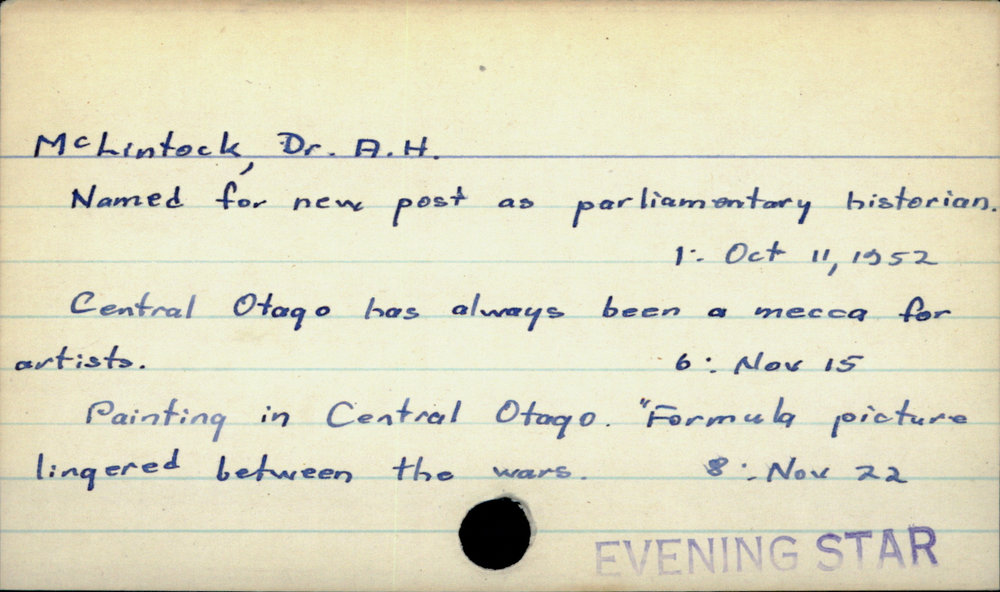 McLintock, Dr. A.H.
Named for new post as parliamentary historian.
1:. Oct 11, 1952
Central Otago has always been a mecca for
artists. 6: Nov 15
Painting in Central Otago. "Formula picture
lingered between the wars. 8: Nov 22
EVENING STAR